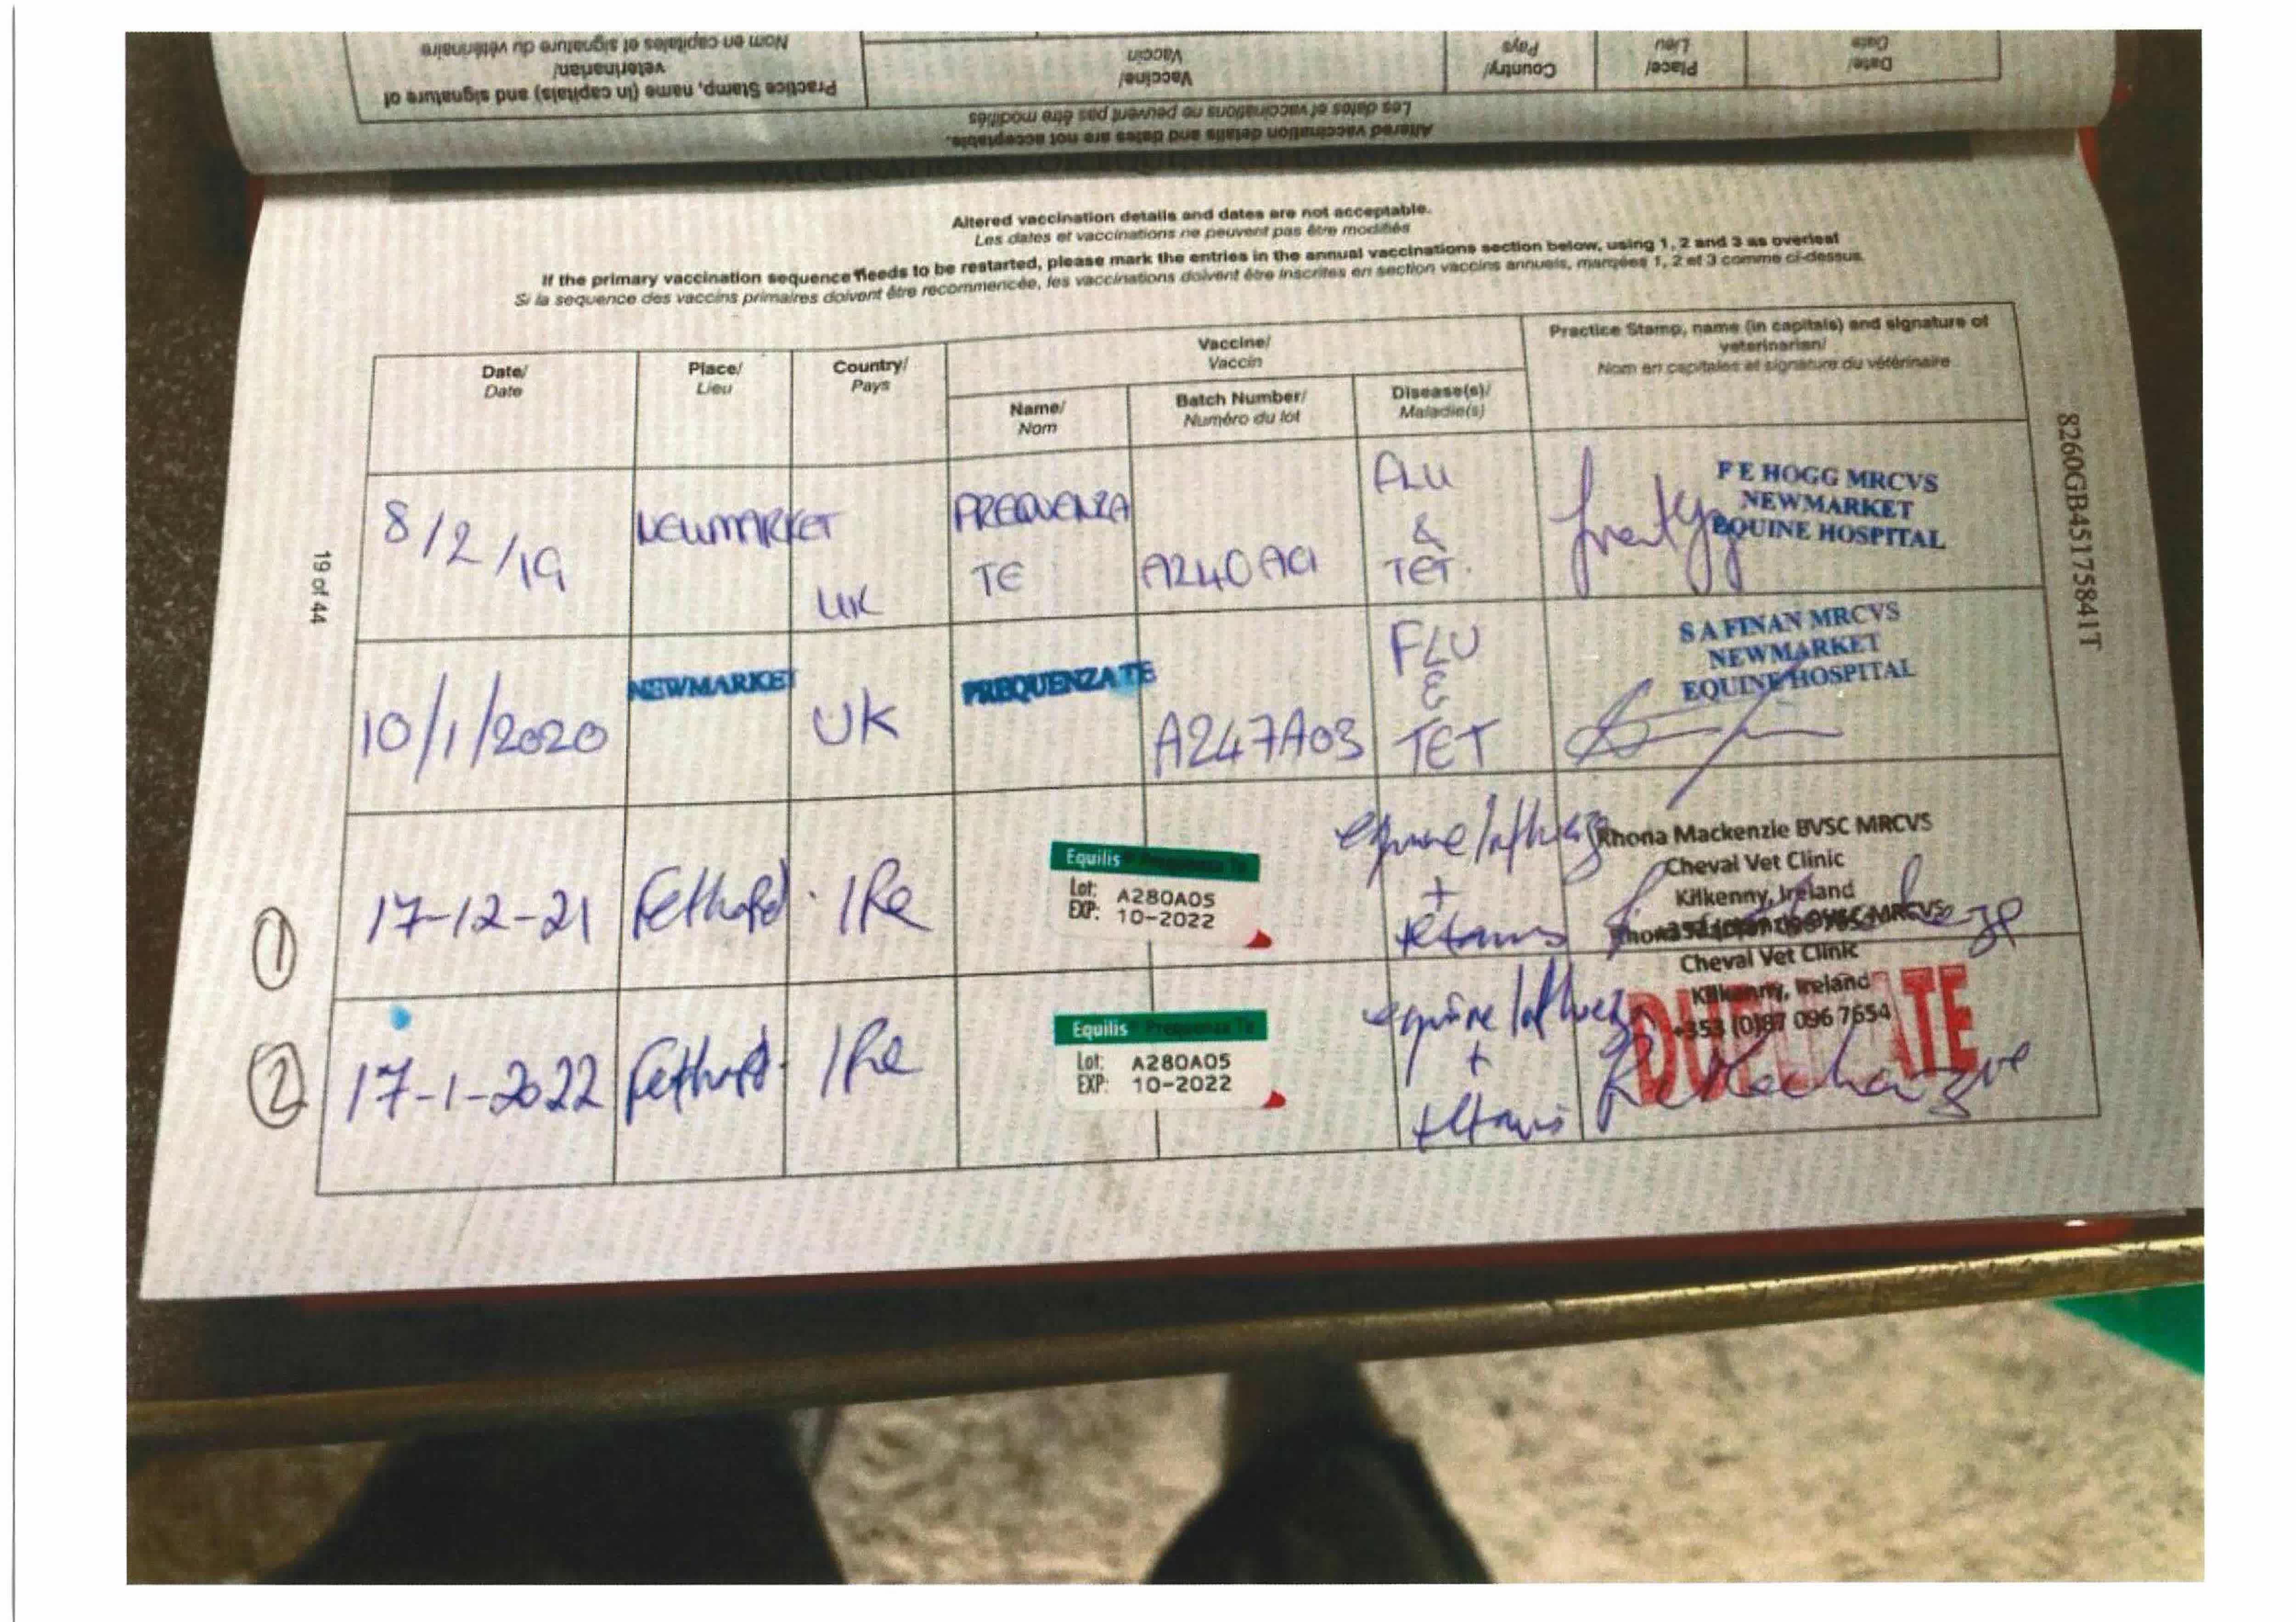 Practice Stamp, name (in capitals) and signature of
veterinarian/
Nom en capitales et signature du vétérinaire
Vaccine/
Vaccin
Country/
Pays
Place/
Lieu
Date/
Date
Altered vaccination details and dates are not acceptable.
Les dates et vaccinations ne peuvent pas être modifiés
Altered vaccination details and dates are not acceptable.
Les dates et vaccinations ne peuvent pas être modifiés
If the primary vaccination sequence needs to be restarted, please mark the entries in the annual vaccinations section below, using 1, 2 and 3 as overleaf
Si la sequence des vaccins primaires doivent être recommencée, les vaccinations doivent être inscrites en section vaccins annuels, marqées 1, 2 et 3 comme ci-dessus.
Date/
Date
Place/
Lieu
Country/
Pays
Vaccine/
Vaccin
Name/
Nom
Batch Number/
Numéro du lot
Disease(s)/
Maladie(s)
Practice Stamp, name (in capitals) and signature of
veterinarian/
Nom en capitales et signature du vétérinaire
8/2/19
NEWMARKET
UK
PREQUENZA
TE
FLU
&
TET.
F E HOGG MRCVS
NEWMARKET
EQUINE HOSPITAL
10/1/2020
NEWMARKET
UK
PREQUENZA TE
A247A03
FLU
&
TET
S A FINAN MRCVS
NEWMARKET
EQUINE HOSPITAL
1
17-12-21
Fethard
IRe
Equilis Prequenza Te
Lot: A280A05
EXP: 10-2022
equine Influenza
+
tetanus
Rhona Mackenzie BVSC MRCVS
Cheval Vet Clinic
Kilkenny, Ireland
2
17-1-2022
Fethard
IRe
Equilis Prequenza Te
Lot: A280A05
EXP: 10-2022
equine Influenza
+
tetanus
Cheval Vet Clinic
Kilkenny, Ireland
+353 (0)87 096 7654
DUPLICATE
19 of 44
8260GB45175841T